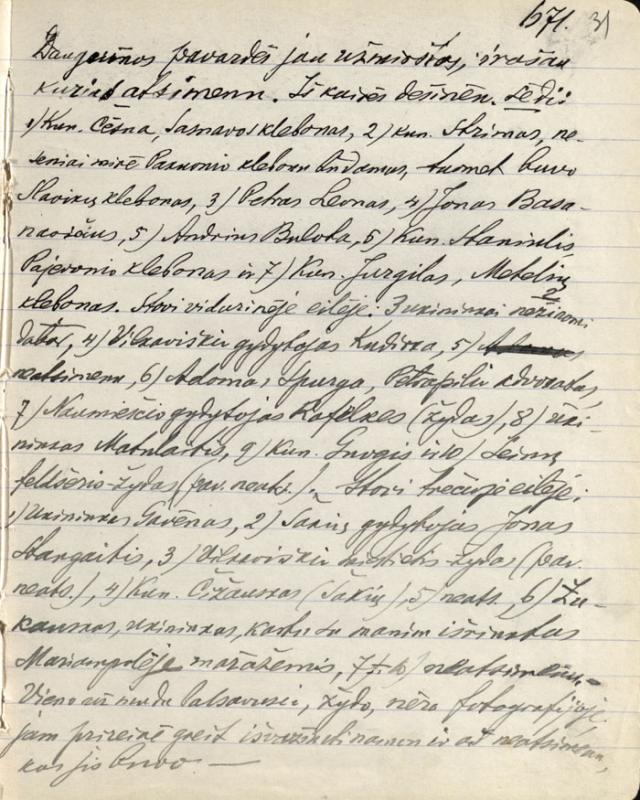 671. 31
Daugumos pavardės jau užmirštos, įrašau
kurias atsimenu. Iš kairės dešinėn. Sėdi:
1) Kun. Čėsna, Sasnavos klebonas, 2) kun. Strimas, ne-
seniai mirė Panmonio klebonu būdamas, tuomet buvo
klebonas, 3) Petras Leonas, 4) Jonas Basa-
navičius, 5) Andrius Bulota, 6) Kun. Staniulis,
Pajevonio klebonas ir 7) Kun. Jurgilas, Metelių
klebonas. Stovi vidurinėje eilėje: 3 ūkininkai nežinomi
4) Vilkaviškio gydytojas Kudirka, 5)
neatsimenu, 6) Adomas Spurga, Petrapilio advokatas,
7) Naumiesčio gydytojas (žydas), 8) ūki-
ninkas Matulaitis, 9) kun. Grogis ir 10) Seinų
feldšeris žydas (pav. neats.). Stovi trečioje eilėje:
1) Ukininkas Gavėnas, 2) Šakių gydytojas Jonas
Staugaitis, 3) Vilkaviškio miestietis žydas (pav.
neats.), 4) Kun. Čižauskas (Šakių), 5) neats., 6) Žu-
kauskas, ukininkas, kartu su manim išrinktas
Mariampolėje mažažemis, 7 neatsimenu.
Vieno už mudu balsavusi, žydo, nėra fotografijoje,
jam prireikė greit išvažiuoti namon ir aš neatsimenu,
kas jis buvo —